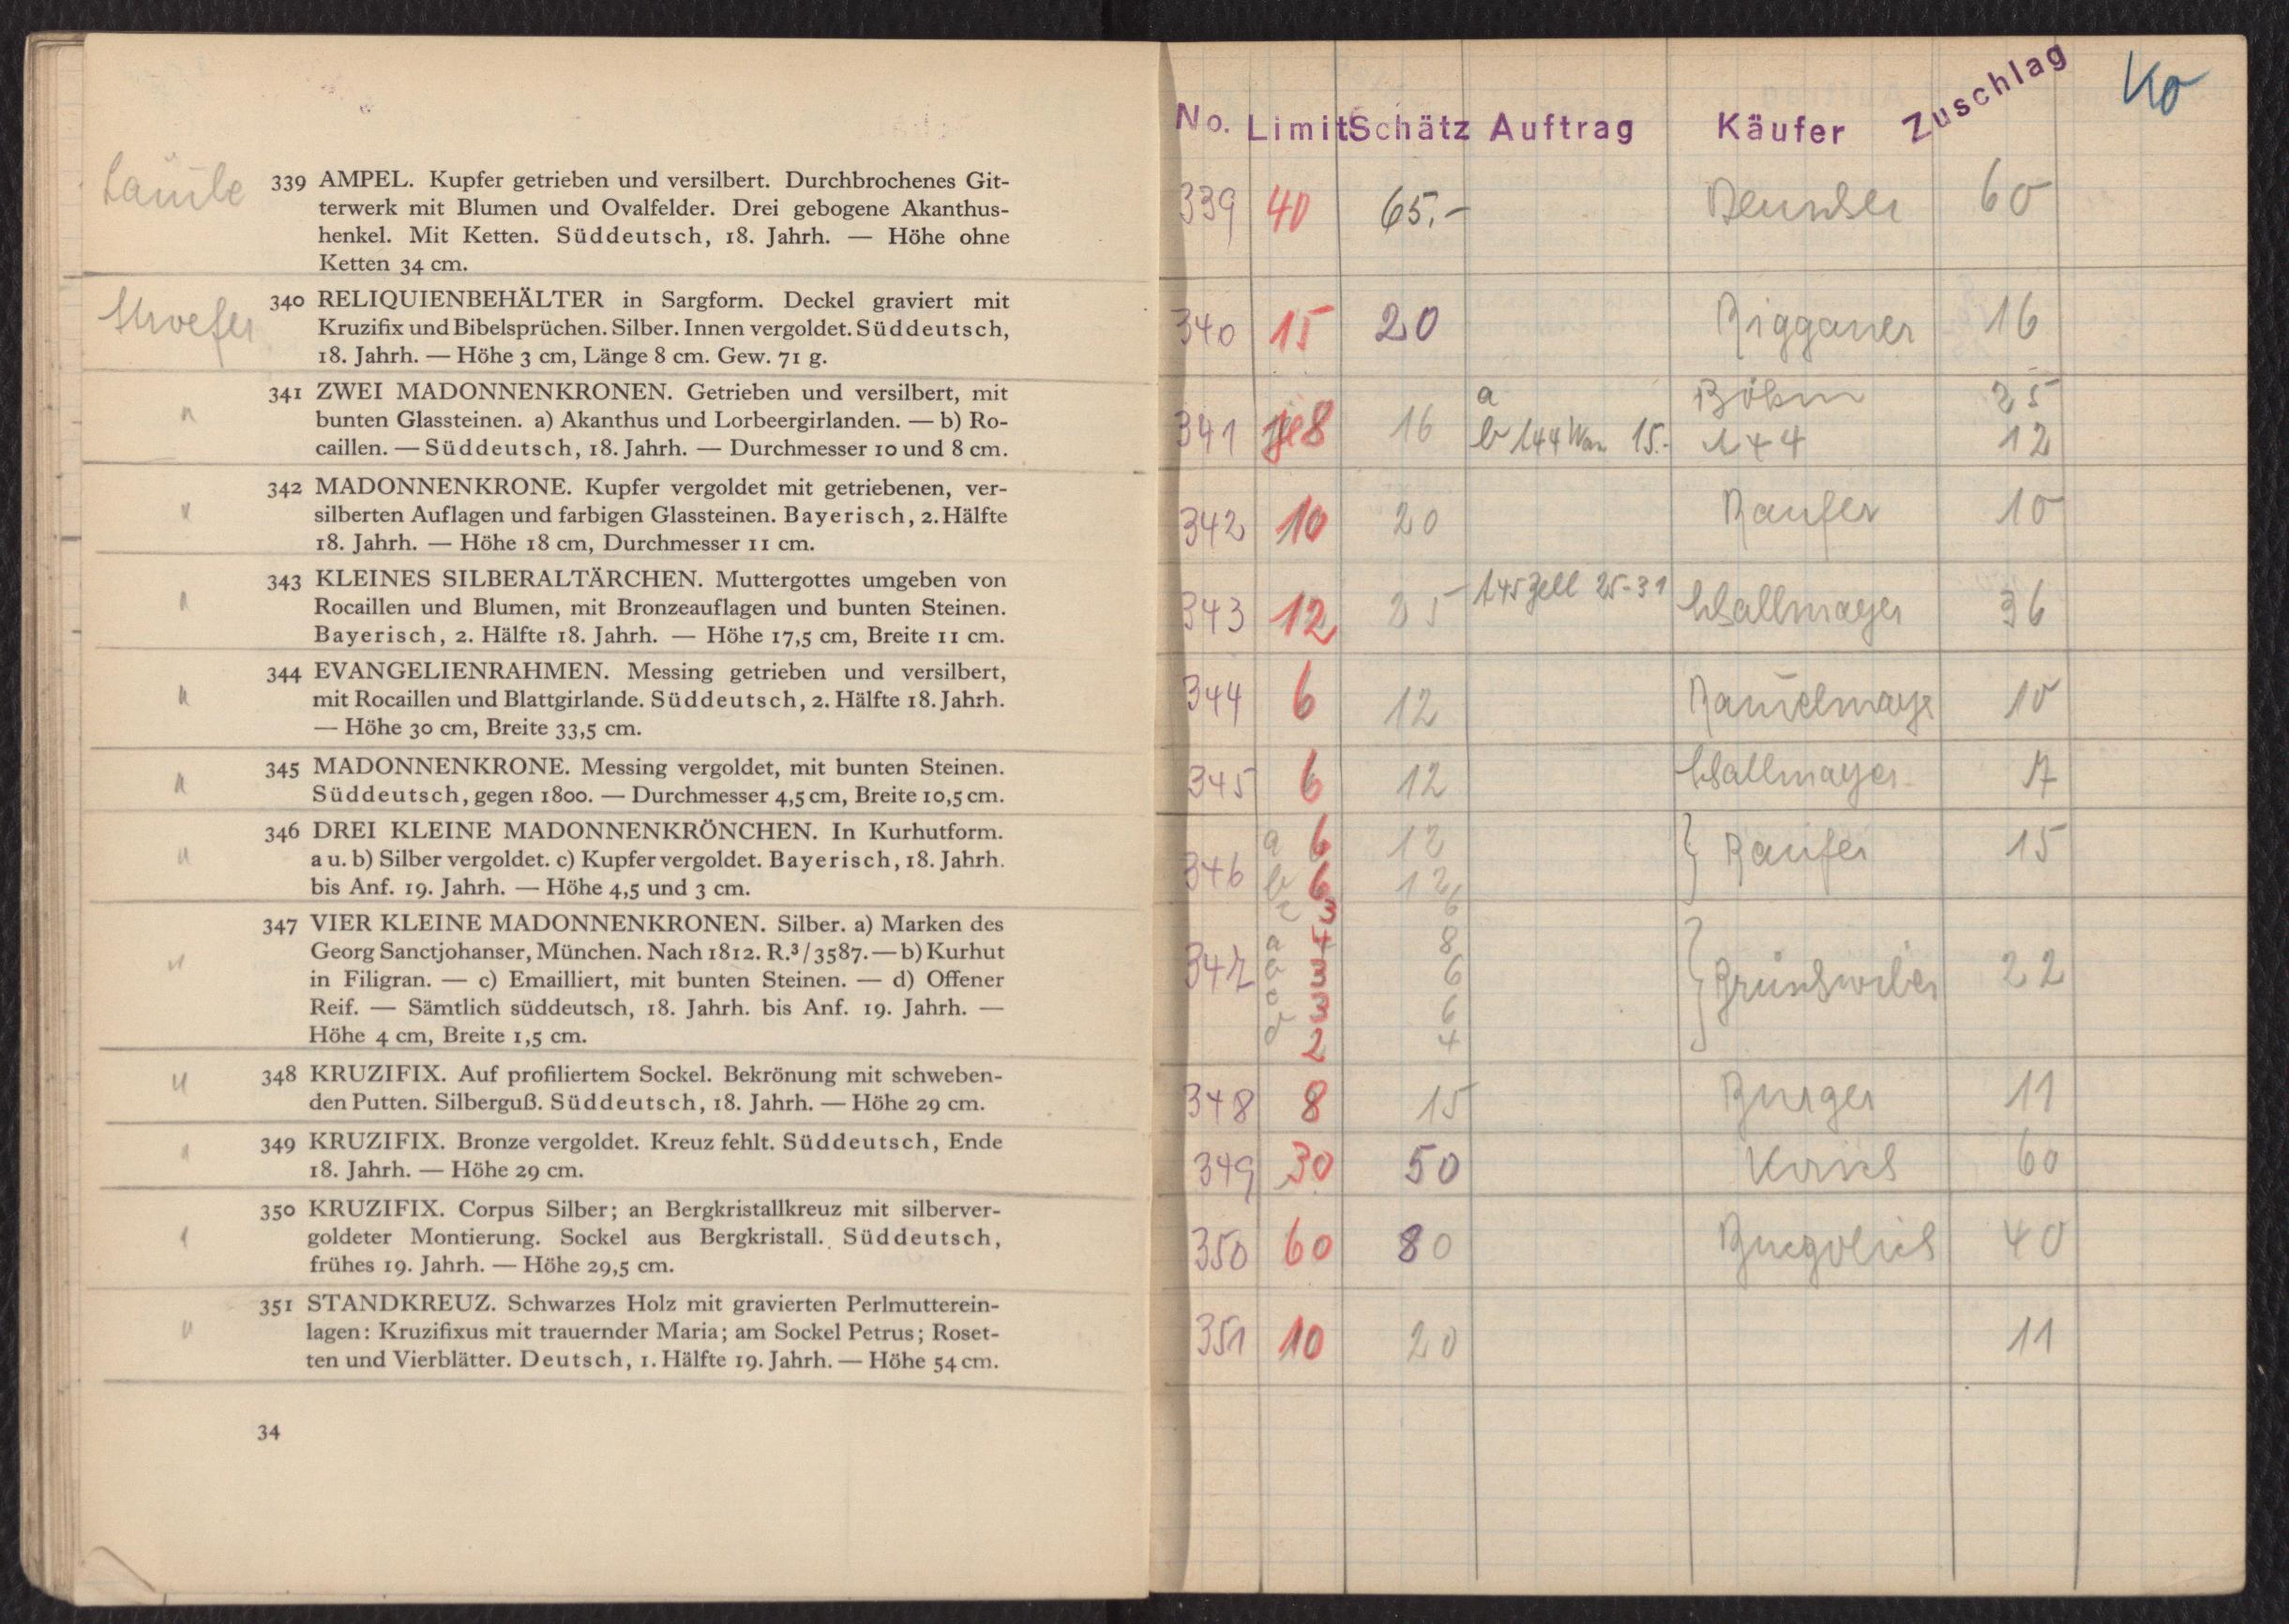 339 AMPEL. Kupfer getrieben und versilbert. Durchbrochenes Git-
terwerk mit Blumen und Ovalfelder. Drei gebogene Akanthus-
henkel. Mit Ketten. Süddeutsch, 18. Jahrh. — Höhe ohne
Ketten 34 cm.
340 RELIQUIENBEHÄLTER in Sargform. Deckel graviert mit
Kruzifix und Bibelsprüchen. Silber. Innen vergoldet. Süddeutsch,
18. Jahrh. — Höhe 3 cm, Länge 8 cm. Gew. 71 g.
341 ZWEI MADONNENKRONEN. Getrieben und versilbert, mit
bunten Glassteinen. a) Akanthus und Lorbeergirlanden. — b) Ro-
caillen. — Süddeutsch, 18. Jahrh. — Durchmesser 10 und 8 cm.
342 MADONNENKRONE. Kupfer vergoldet mit getriebenen, ver-
silberten Auflagen und farbigen Glassteinen. Bayerisch, 2. Hälfte
18. Jahrh. — Höhe 18 cm, Durchmesser 11 cm.
343 KLEINES SILBERALTÄRCHEN. Muttergottes umgeben von
Rocaillen und Blumen, mit Bronzeauflagen und bunten Steinen.
Bayerisch, 2. Hälfte 18. Jahrh. — Höhe 17,5 cm, Breite 11 cm.
344 EVANGELIENRAHMEN. Messing getrieben und versilbert,
mit Rocaillen und Blattgirlande. Süddeutsch, 2. Hälfte 18. Jahrh.
— Höhe 30 cm, Breite 33,5 cm.
345 MADONNENKRONE. Messing vergoldet, mit bunten Steinen.
Süddeutsch, gegen 1800. — Durchmesser 4,5 cm, Breite 10,5 cm.
346 DREI KLEINE MADONNENKRÖNCHEN. In Kurhutform.
a u. b) Silber vergoldet. c) Kupfer vergoldet. Bayerisch, 18. Jahrh.
bis Anf. 19. Jahrh. — Höhe 4,5 und 3 cm.
347 VIER KLEINE MADONNENKRONEN. Silber. a) Marken des
Georg Sanctjohanser, München. Nach 1812. R.³/3587. — b) Kurhut
in Filigran. — c) Emailliert, mit bunten Steinen. — d) Offener
Reif. — Sämtlich süddeutsch, 18. Jahrh. bis Anf. 19. Jahrh. —
Höhe 4 cm, Breite 1,5 cm.
348 KRUZIFIX. Auf profiliertem Sockel. Bekrönung mit schweben-
den Putten. Silberguß. Süddeutsch, 18. Jahrh. — Höhe 29 cm.
349 KRUZIFIX. Bronze vergoldet. Kreuz fehlt. Süddeutsch, Ende
18. Jahrh. — Höhe 29 cm.
350 KRUZIFIX. Corpus Silber; an Bergkristallkreuz mit silberver-
goldeter Montierung. Sockel aus Bergkristall. Süddeutsch,
frühes 19. Jahrh. — Höhe 29,5 cm.
351 STANDKREUZ. Schwarzes Holz mit gravierten Perlmutterein-
lagen: Kruzifixus mit trauernder Maria; am Sockel Petrus; Roset-
ten und Vierblätter. Deutsch, 1. Hälfte 19. Jahrh. — Höhe 54 cm.
34
No. Limit Schätz Auftrag Käufer Zuschlag
339 40 65.- 60
340 15 20 16
341 je 8 16 a Böhm 25
b 144 15.- 144 12
342 10 20 Raufer 10
343 12 25 145 Zell 25-31 Wallmayer 36
344 6 12 10
345 6 12 Wallmayer 7
346 a 6 12 Raufer 15
b 6 12
c 3 6
347 a 4 8 22
b 3 6
c 3 6
d 2 4
348 8 15 Burger 11
349 30 50 60
350 60 80 40
351 10 20 11